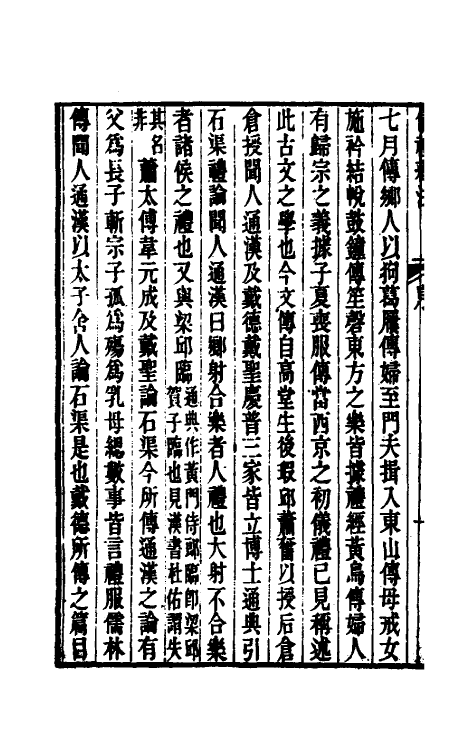 七月傳鄉人以狗葛屨傳婦至門夫揖入東山傳母戒女
施衿結帨鼓鐘傳笙磬東方之樂皆據禮經黃鳥傳婦人
有歸宗之義據子夏喪服傳當西京之初儀禮已見稱述
此古文之學也今文傳自高堂生後瑕邱蕭奮以授后倉
倉授聞人通漢及戴德戴聖慶普三家皆立博士通典引
石渠禮論聞人通漢曰鄉射合樂者人禮也大射不合樂
者諸侯之禮也又與梁邱臨通典作黃門侍郎臨卽梁邱賀子臨也見漢書杜佑謂失
其名非蕭太傅韋元成及戴聖論石渠今所傳通漢之論有
父爲長子斬宗子孤爲殤爲乳母緦數事皆言禮服儒林
傳聞人通漢以太子舍人論石渠是也戴德所傳之篇目